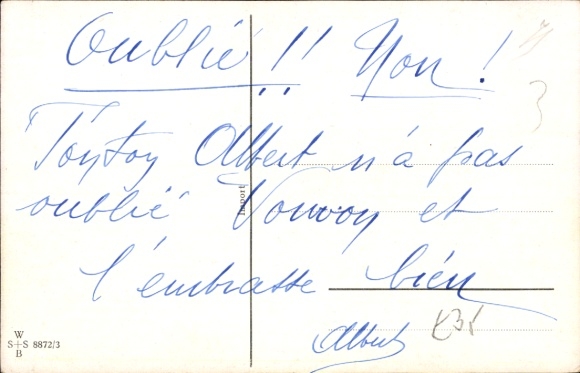 Oublié !! Non !
Tonton Albert n'a pas
oublié Vonvon et
l'embrasse bien
Albert
Import
W
S+S 8872/3
B